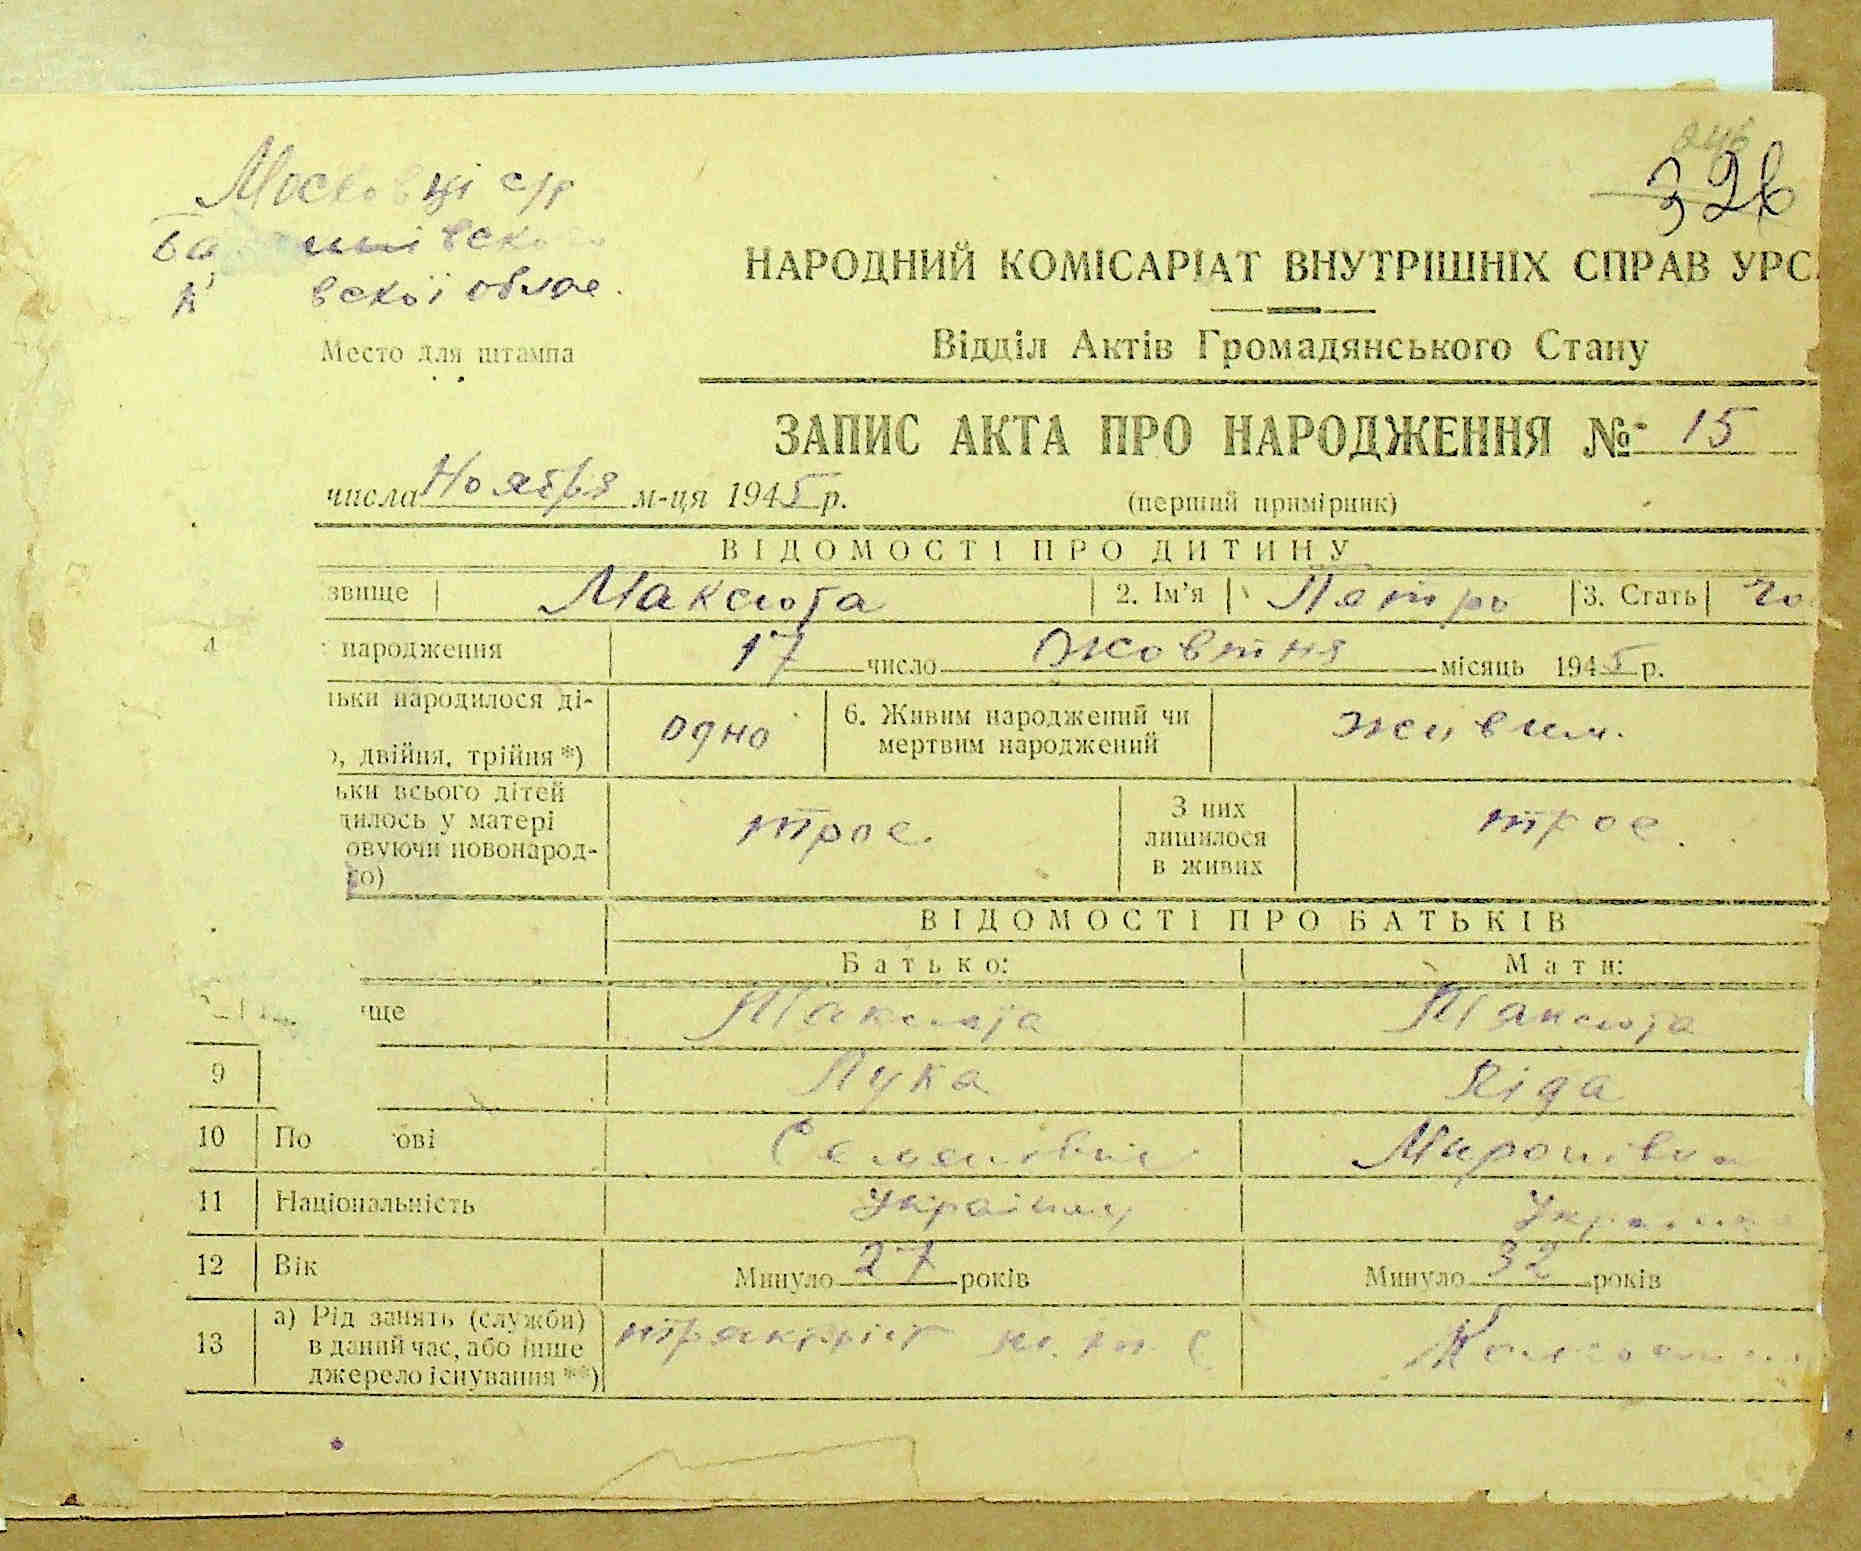 Московці с/р
вской облас.
Место для штампа
246
326
НАРОДНИЙ КОМІСАРІАТ ВНУТРІШНІХ СПРАВ УРС
Відділ Актів Громадянського Стану
ЗАПИС АКТА ПРО НАРОДЖЕННЯ № 15
числа Ноября м-ця 1945 р. (перший примірник)
ВІДОМОСТІ ПРО ДИТИНУ
звище Максюта 2. Ім'я Петро 3. Стать чо
4 народження 17 число Жовтня місяць 1945 р.
льки народилося ді-
о, двійня, трійня *) одно 6. Живим народжений чи мертвим народжений живим.
ьки всього дітей
дилось у матері
овуючи новонарод-
го) троє. З них лишилося в живих троє.
ВІДОМОСТІ ПРО БАТЬКІВ
Батько: Мати:
ище Максюта Максюта
9 Лука Ліда
10 По ові Семенович Миронівна
11 Національність
12 Вік Минуло 27 років Минуло 32 років
13 а) Рід занять (служби)
в даний час, або інше
джерело існування **) тракторіст м. т. с